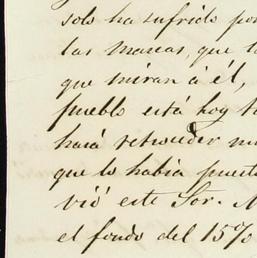 solo ha sufrido por
las mareas, que
que miran á él,
pueblo está hoy
hará retroceder
que lo habia puesto
vió este Sor.
el fondo del 15%